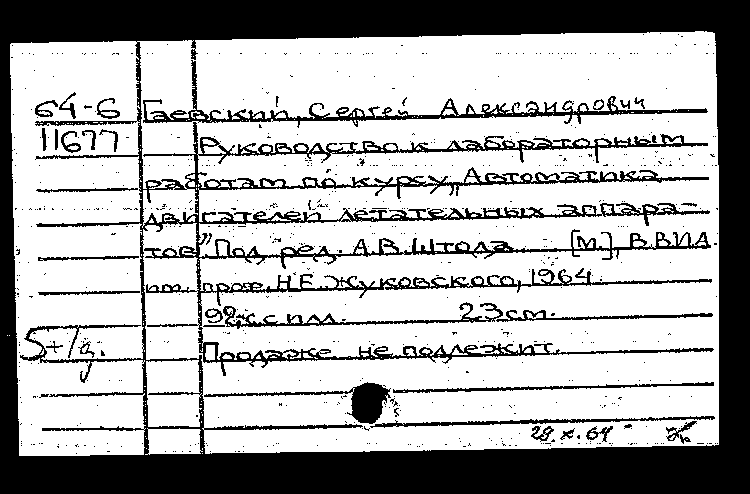 64-6 Гаевский, Сергей Александрович
11677 Руководство к лабораторным
работам по курсу „Автоматика
двигателей летательных аппара-
тов". Под ред. А.В. Штода. [М.], ВВИА
им. проф. Н.Е. Жуковского, 1964.
92 с. с илл. 23 см.
5+1д. Продаже не подлежит.
28.X.64